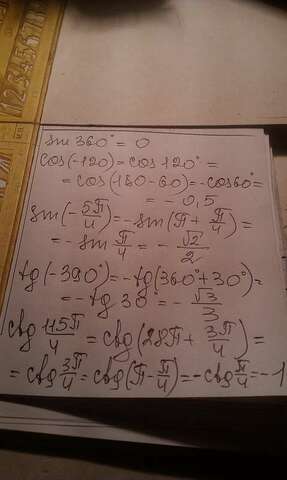 sin 360° = 0
cos(-120) = cos 120° =
= cos(180 - 60) = -cos 60° =
= -0,5
sin(-5π/4) = -sin(π + π/4) =
= -sin π/4 = -√2/2
tg(-390°) = -tg(360° + 30°) =
= -tg 30 = -√3/3
ctg 115π/4 = ctg(28π + 3π/4) =
= ctg 3π/4 = ctg(π - π/4) = -ctg π/4 = -1